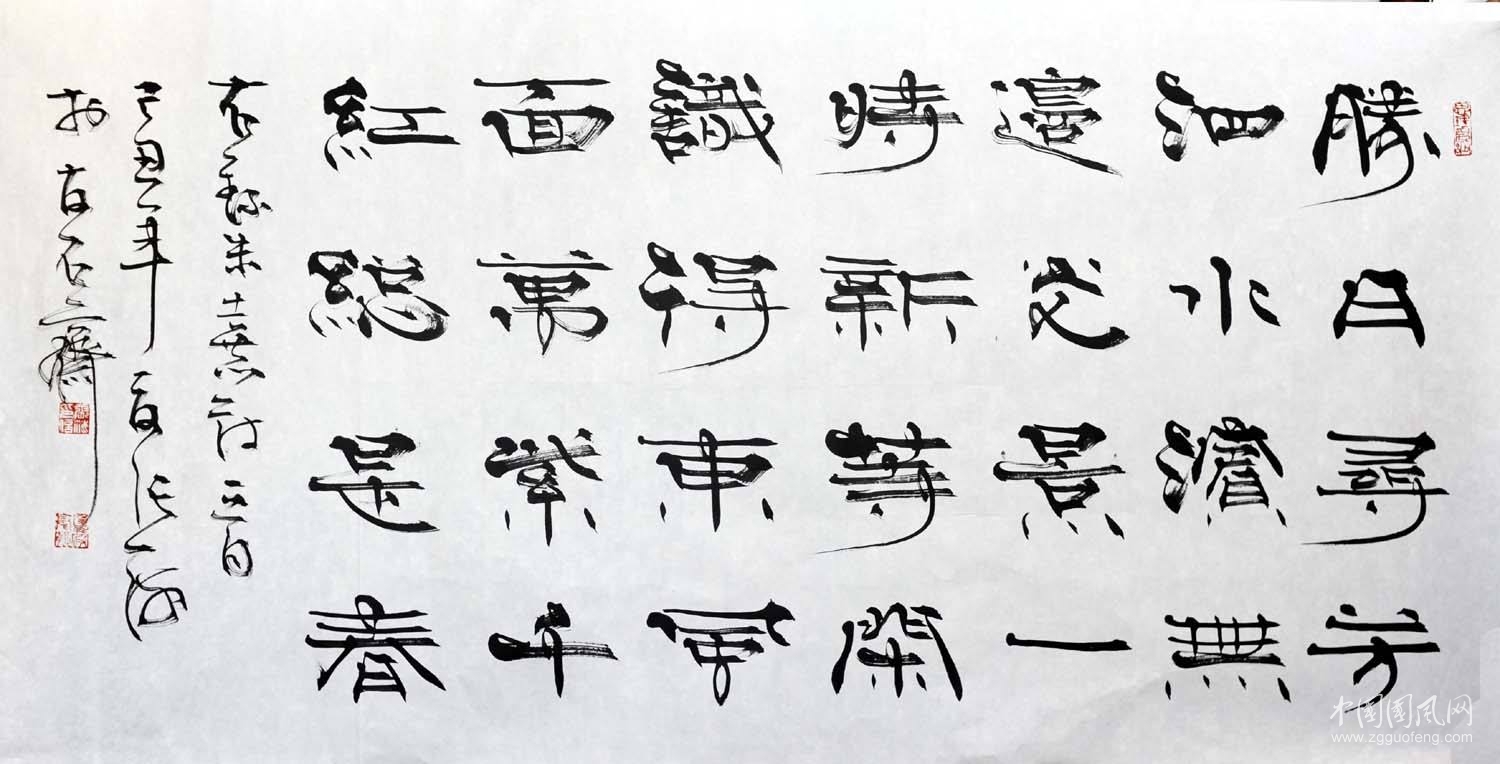 勝日尋芳
泗水濱無
邊光景一
時新等閑
識得東風
面萬紫千
紅總是春
右錄朱
己丑年
於 石之齋
中国國风网
www.zgguofeng.com